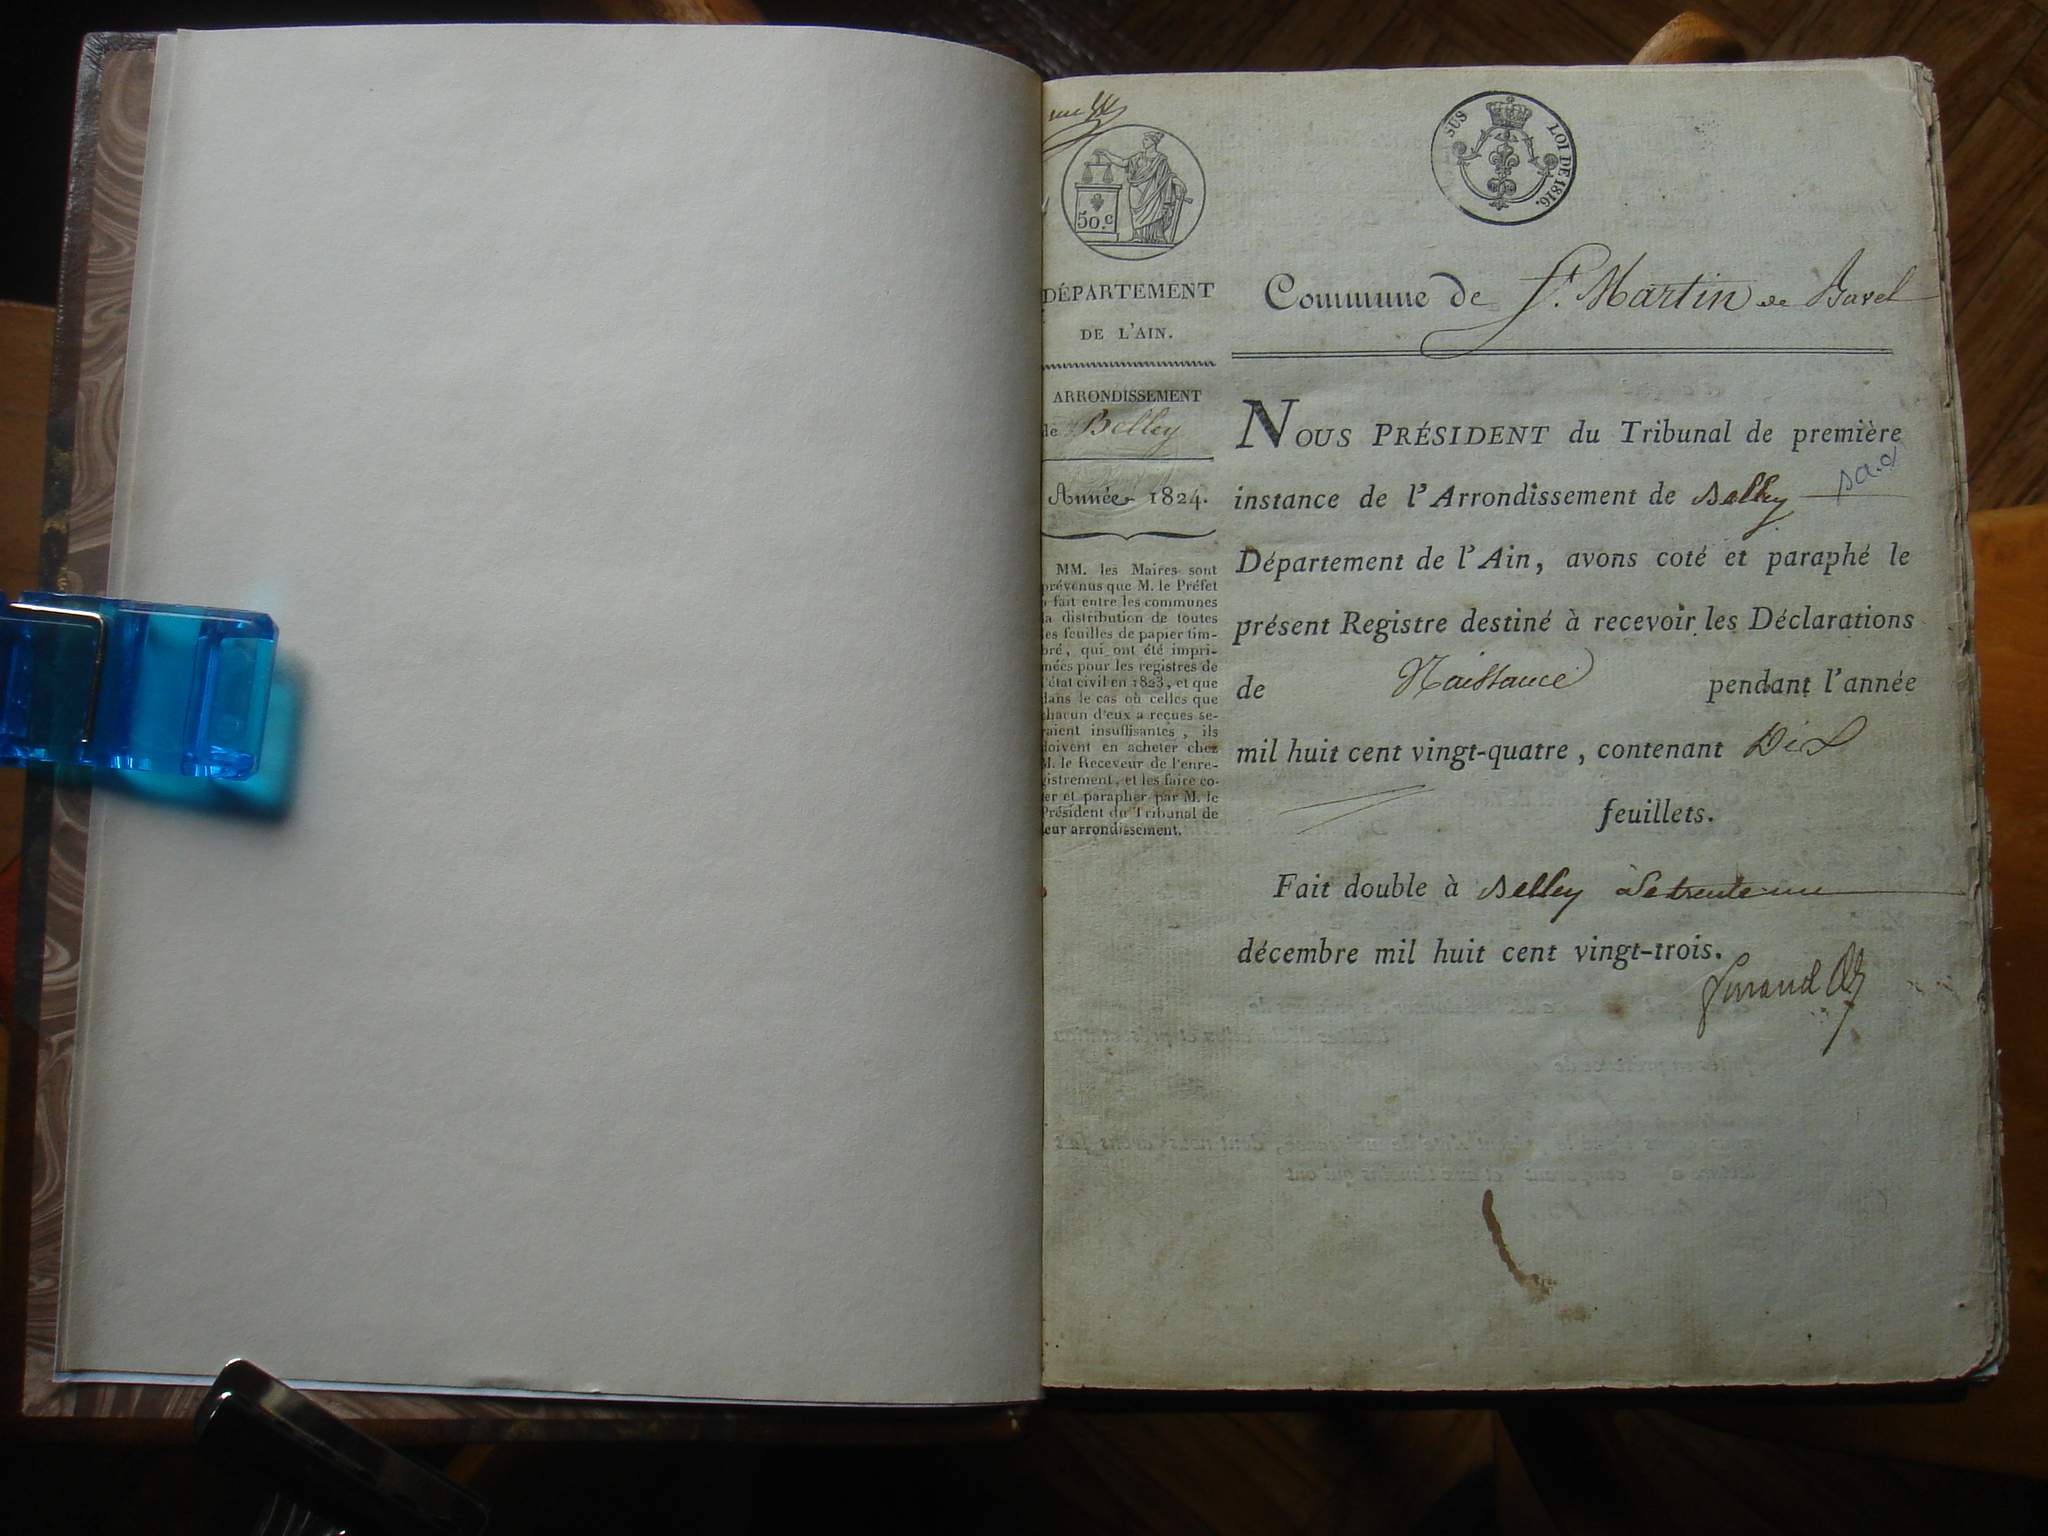 50.c
SUS LOI DE 1816.
DÉPARTEMENT
DE L'AIN.
ARRONDISSEMENT
de Belley
Année 1824.
MM. les Maires sont
prévenus que M. le Préfet
a fait entre les communes
la distribution de toutes
les feuilles de papier tim-
bré, qui ont été impri-
mées pour les registres de
l'état civil en 1823, et que
dans le cas où celles que
chacun d'eux a reçues se-
raient insuffisantes, ils
doivent en acheter chez
M. le Receveur de l'enre-
gistrement, et les faire co-
ter et parapher par M. le
Président du Tribunal de
leur arrondissement.
Commune de St. Martin de Bavel
NOUS PRÉSIDENT du Tribunal de première
instance de l'Arrondissement de Belley
Département de l'Ain, avons coté et paraphé le
présent Registre destiné à recevoir les Déclarations
de Naissance pendant l'année
mil huit cent vingt-quatre, contenant Dix
feuillets.
Fait double à Belley le trente un
décembre mil huit cent vingt-trois.